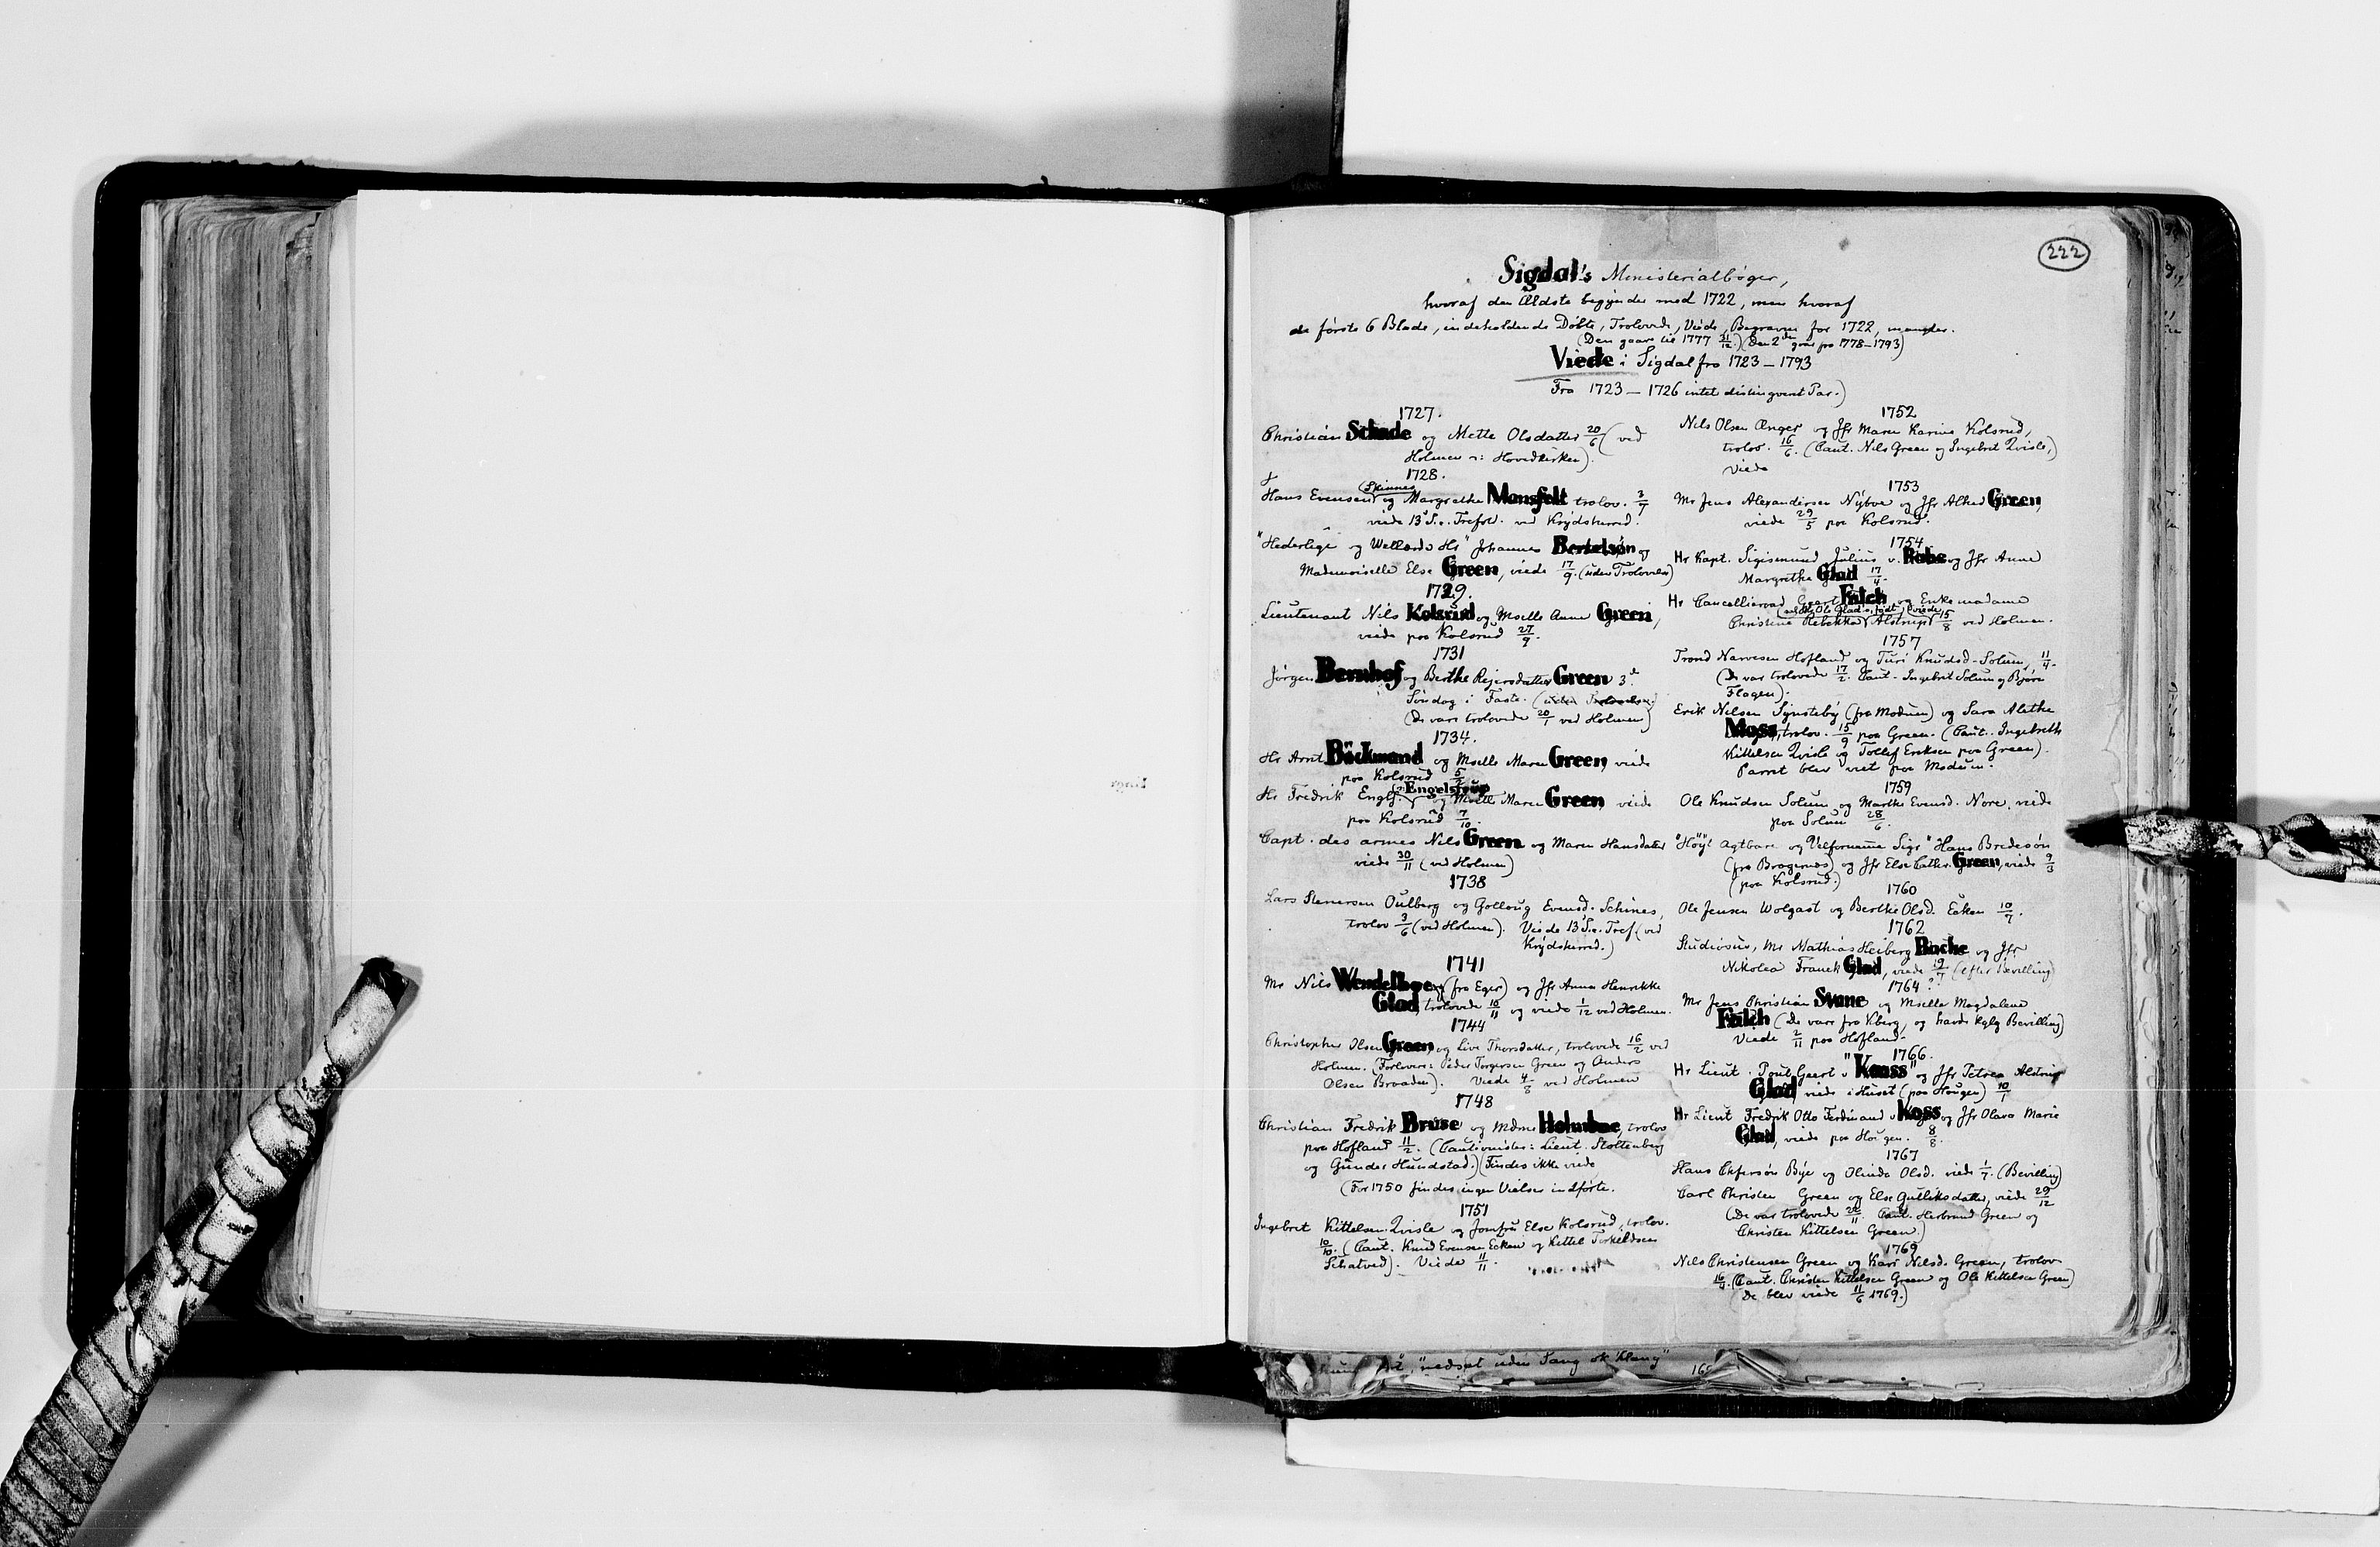 222
Sigdal's Ministerialbøger,
hvoraf den Ældste begynder med 1722, men hvoraf
de første 6 Blade, indeholdende Døbte, Trolovede, Viede, Begravne for 1722, mangler.
(Den gaar til 1777 31/12.) (Den 2den gaar fra 1778-1793)
Viede i Sigdal fra 1723-1793
Fra 1723-1726 intet distingveret Par.)
1727.
Christian Schade og Mette Olsdatter 20/6 (ved
Holmen ɔ: Hovedkirken).
1728.
Hans Evensen (Skinnes) og Margrethe Mansfelt trolov. 3/7
viede 13 S. e. Trefold. ved Krydsherred.
"Hederlige og Wellærde Hr" Johannes Bertelsøn og
Mademoiselle Else Green, viede 17/9. (uden Trolovelse)
1729.
Lieutenant Nils Kolsrud og Mselle Anne Green,
viede paa Kolsrud 27/9.
1731
Jørgen Bernhof og Berthe Rejersdatter Green 3de
Søndag i Faste. (uden Trolovelse.)
(De vare trolovede 20/1 ved Holmen)
1734.
Hr Arnt Böckmand og Mselle Maren Green, viede
paa Kolsrud
Hr Fredrik Englst. (ɔ: Engelstrup) og Mselle Maren Green, viede
paa Kolsrud 7/10.
Capt. des armes Nils Green og Maren Hansdatter
viede 30/11 (ved Holmen)
1738
Lars Stenersen Oulberg og Golloug Evensd. Schines,
trolov 3/6 (ved Holmen). Viede 13 S. e. Tref. (ved
Krydsherred.)
1741
Mr Nils Wendelboe (fra Eger) og Jfr Anna Henrikke
Glad, trolovede 10/11 og viede 1/12 ved Holmen.
1744
Christopher Olsen Green og Live Thorsdatter, trolovede 16/2 ved
Holmen. (Forlovere: Peder Torgersen Green og Anders
Olsen Braaden). Viede ved Holmen
1748
Christian Fredrik Bruse og Mdme Holmboe, trolov
paa Hofland 11/2. (Cautionister: Lieut. Stoltenberg
og Gunder Hundstad.) (Findes ikke viede
(For 1750 findes ingen Vielser indførte.
1751
Ingebret Kittelsen Qvisle og Jomfru Else Kolsrud, trolov.
10/10. (Caut. Knud Evensen Ecken og Kittel Torkeldsen
Schatved). Viede 11/11.
1752
Nils Olsen Anger og Jfr Maren Karine Kolsrud,
trolov. 16/6. (Caut. Nils Green og Ingebret Qvisle,)
Viede
1753
Mr Jens Alexandersen Nyboe og Jfr Alhed Green,
viede 29/5 paa Kolsrud.
1754
Hr Kapt. Sigismund Julius v. Rabe og Jfr Anne
Margrethe Glad 17/4.
Hr Cancellieraad Geert Falch og Enkemadame
Christine Rebekka (sal. Ole Glad's, født) Alstrup, viede 15/8 ved Holmen.
1757
Trond Narvesen Hofland og Turi Knudsd. Solum, 11/4.
(De var trolovede 17/2. Caut. Ingebrit Solum og Bjørn
Flagen).
Erik Nilsen Synsteby (fra Modum) og Sara Alethe
Moss, trolov. 15/9 paa Green. (Caut. Ingebreth
Kittelsen Qvisle og Tollef Eriksen paa Green).
Parret blev viet paa Modum.
1759
Ole Knudsen Solum og Marthe Evensd. Nore, viede
paa Solum 28/6.
"Høyt Agtbare og Velfornemme Sigr" Hans Bredesøn
(fra Bragernes) og Jfr Else Cathr. Green, viede 9/3
(paa Kolsrud.)
1760
Ole Jensen Wolgast og Berthe Olsd. Ecken 10/7.
1762
Studiosus, Mr Mathias Heiberg Bache og Jfr
Nikolea Franck Glad, viede 19/7 (efter Bevilling)
1764
Mr Jens Christian Svane og Mselle Magdalene
Falch (De vare fra Kberg, og havde kglg Bevilling)
Viede 2/11 paa Hofland.
1766.
Hr Lieut. Poul Geert v "Kaass" og Jfr Petrea Alstrup
Glad, viede i Huset (paa Hougen) 10/1
Hr Lieut Fredrik Otto Ferdinand v Koss og Jfr Olava Marie
Glad, viede paa Hougen. 8/8.
1767
Hans Chfersøn Bye og Olinde Olsd. viede 1/7. (Bevilling)
Carl Christen Green og Else Gulliksdatter, viede 29/12
(De var trolovede. Caut. Herbrand Green og
Christen Kittelsen Green.)
1769
Nils Christensen Green og Kari Nilsd. Green, trolov
(Caut. Christen Kittelsen Green og Ole Kittelsen Green)
(De blev viede 11/6 1769.)
"nedsat uden Sang ok Klang"